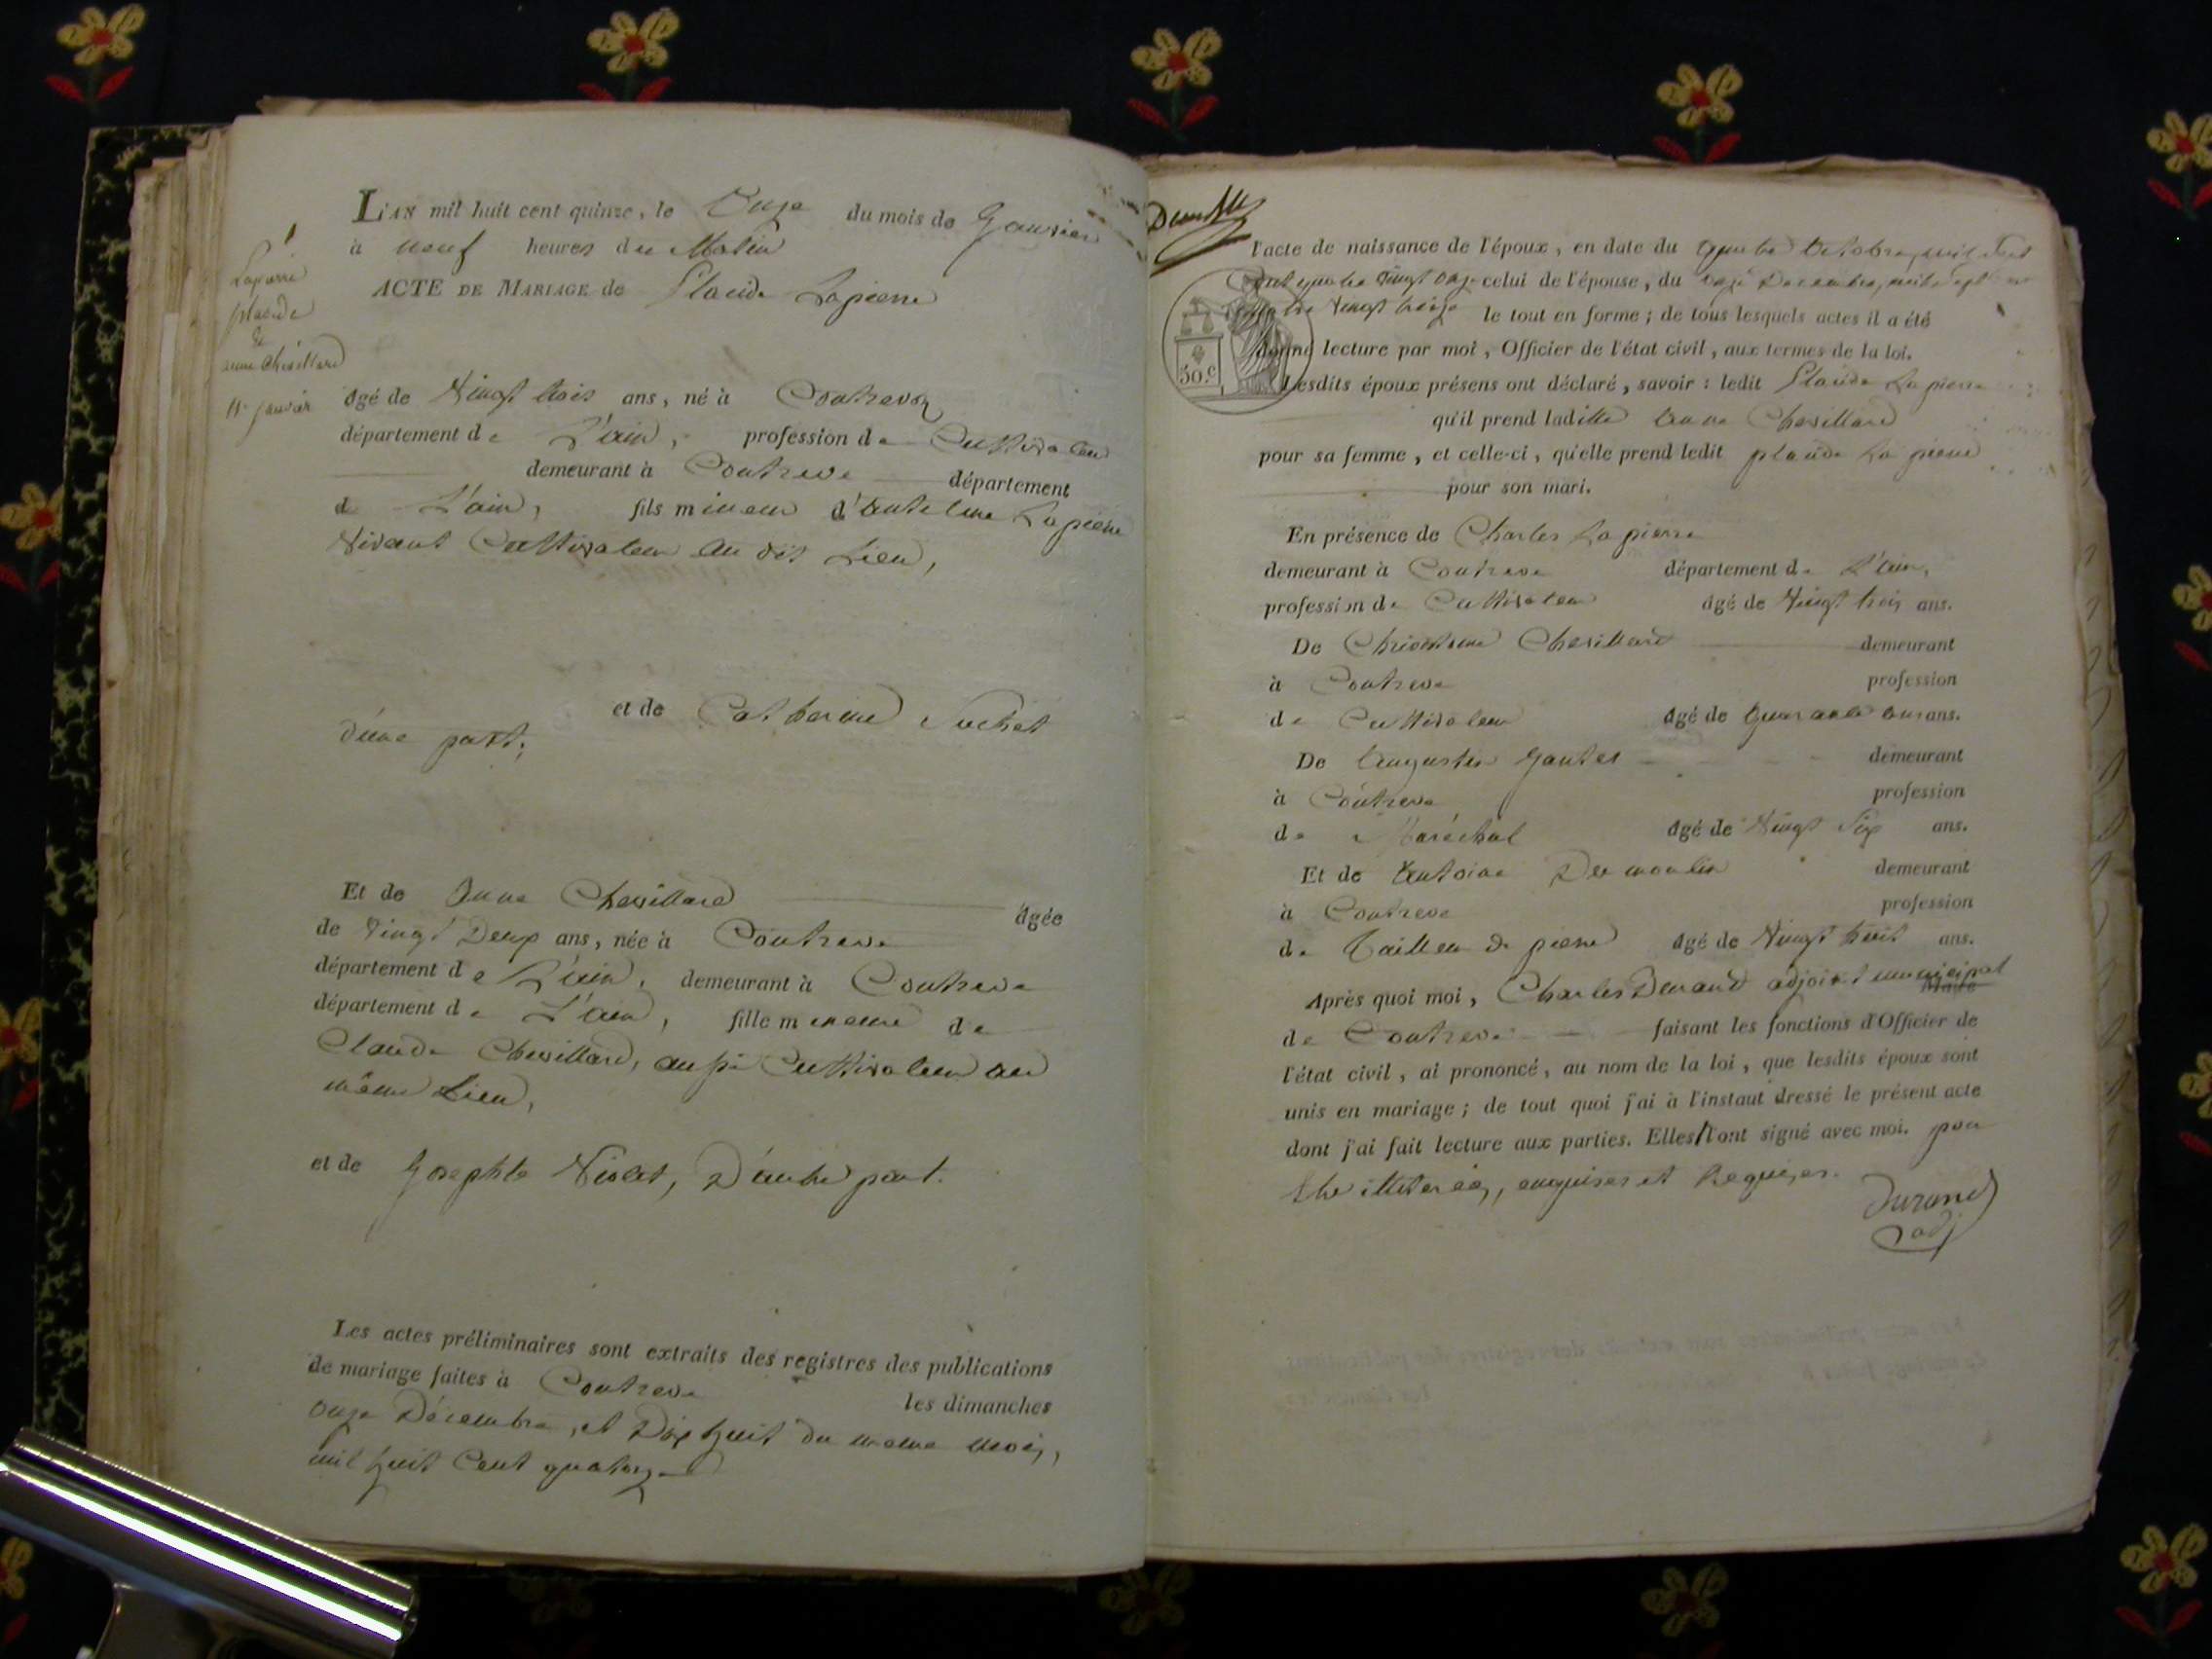 L'AN mil huit cent quinze, le Onze du mois de Janvier
à neuf heures du Matin
ACTE DE MARIAGE de Placide Lapierre
Lapierre
placide
&
anne chevillard
11 janvier
âgé de Vingt trois ans, né à Contrevoz
département de L'ain, profession de Cultivateur
demeurant à Contreve département
de L'ain, fils mineur d'antelme Lapierre
Vivant Cultivateur au dit Lieu,
et de Catherine Suchet
d'une part;
Et de Anne Chevillard âgée
de Vingt Deux ans, née à Contreve
département de L'ain, demeurant à Contreve
département de L'ain, fille mineure de
Claude Chevillard, aussi Cultivateur au
même Lieu,
et de Josephte Violet, D'autre part.
Les actes préliminaires sont extraits des registres des publications
de mariage faites à Contreve les dimanches
onze Décembre, et Dix huit du meme mois,
mil huit Cent quatorze
l'acte de naissance de l'époux, en date du quatre Octobre, mil Sept
Cent quatre Vingt onze celui de l'épouse, du Decembre, mil Sept
Vingt treize le tout en forme; de tous lesquels actes il a été
donné lecture par moi, Officier de l'état civil, aux termes de la loi.
50.c
Lesdits époux présens ont déclaré, savoir: ledit Placide Lapierre
qu'il prend laditte Anne Chevillard
pour sa femme, et celle-ci, qu'elle prend ledit placide La pierre
pour son mari.
En présence de Charles La pierre
demeurant à Contreve département de L'ain,
profession de Cultivateur âgé de Vingt trois ans.
De Chevillard demeurant
à Contreve profession
de Cultivateur âgé de quarante ans.
De augustin Gantet demeurant
à Contreve profession
de Maréchal âgé de Vingt Six ans.
Et de Antoine Demoulin demeurant
à Contreve profession
de Tailleur de pierre âgé de Vingt huit ans.
Après quoi moi, Charles Durand adjoint municipal Maire
de Contreve faisant les fonctions d'Officier de
l'état civil, ai prononcé, au nom de la loi, que lesdits époux sont
unis en mariage; de tout quoi j'ai à l'instant dressé le présent acte
dont j'ai fait lecture aux parties. Elles l'ont signé avec moi. pour
être illiterées, enquises et Requises.
Durand
adj